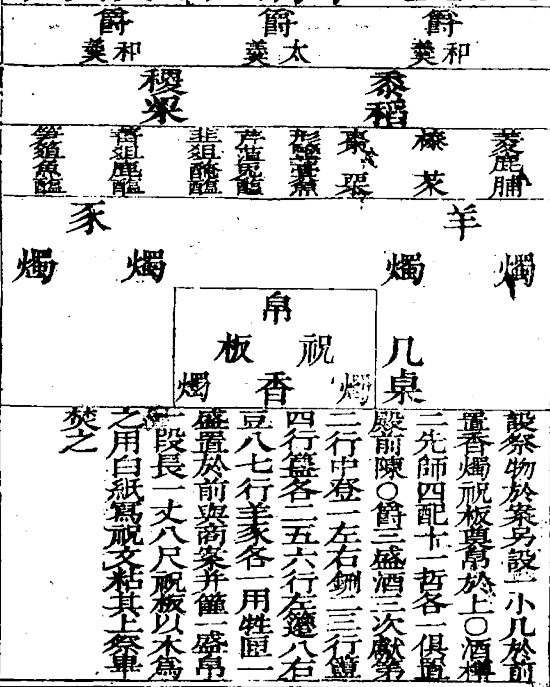 爵 和羹
爵 太羹
爵 和羹
黍稻
稷粱
菱鹿脯
榛芡
棗栗
形鹽
芹菹兔醢
韭菹醓醢
菁菹鹿醢
笋菹魚醢
羊
豕
燭 燭
燭 燭
几桌
帛
祝板
燭香燭
設祭物於案另設一小几於前
置香燭祝板奠帛於上○酒樽
二先師四配十一哲各一俱置
殿前陳○爵三盛酒三次獻第
二行中登一左右鉶二三行簠
四行簋各二五六行左籩八右
豆八七行羊豕各一用牲匣一
盛置於前與商案并篚一盛帛
一段長一丈八尺祝板以木爲
之用白紙寫祝文粘其上祭畢
焚之